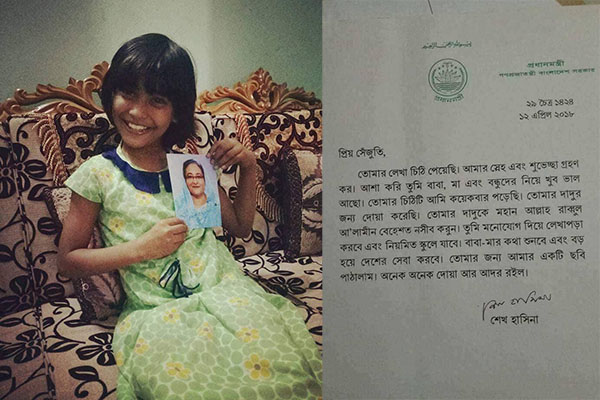 প্রধানমন্ত্রী
গণপ্রজাতন্ত্রী বাংলাদেশ সরকার
প্রধানমন্ত্রী
২৯ চৈত্র ১৪২৪
১২ এপ্রিল ২০১৮
প্রিয় সেঁজুতি,
তোমার লেখা চিঠি পেয়েছি। আমার স্নেহ এবং শুভেচ্ছা গ্রহণ
কর। আশা করি তুমি বাবা, মা এবং বন্ধুদের নিয়ে খুব ভাল
আছো। তোমার চিঠিটি আমি কয়েকবার পড়েছি। তোমার দাদুর
জন্য দোয়া করেছি। তোমার দাদুকে মহান আল্লাহ রাব্বুল
আ'লামীন বেহেশত নসীব করুন। তুমি মনোযোগ দিয়ে লেখাপড়া
করবে এবং নিয়মিত স্কুলে যাবে। বাবা-মার কথা শুনবে এবং বড়
হয়ে দেশের সেবা করবে। তোমার জন্য আমার একটি ছবি
পাঠালাম। অনেক অনেক দোয়া আর আদর রইল।
শেখ হাসিনা
শেখ হাসিনা